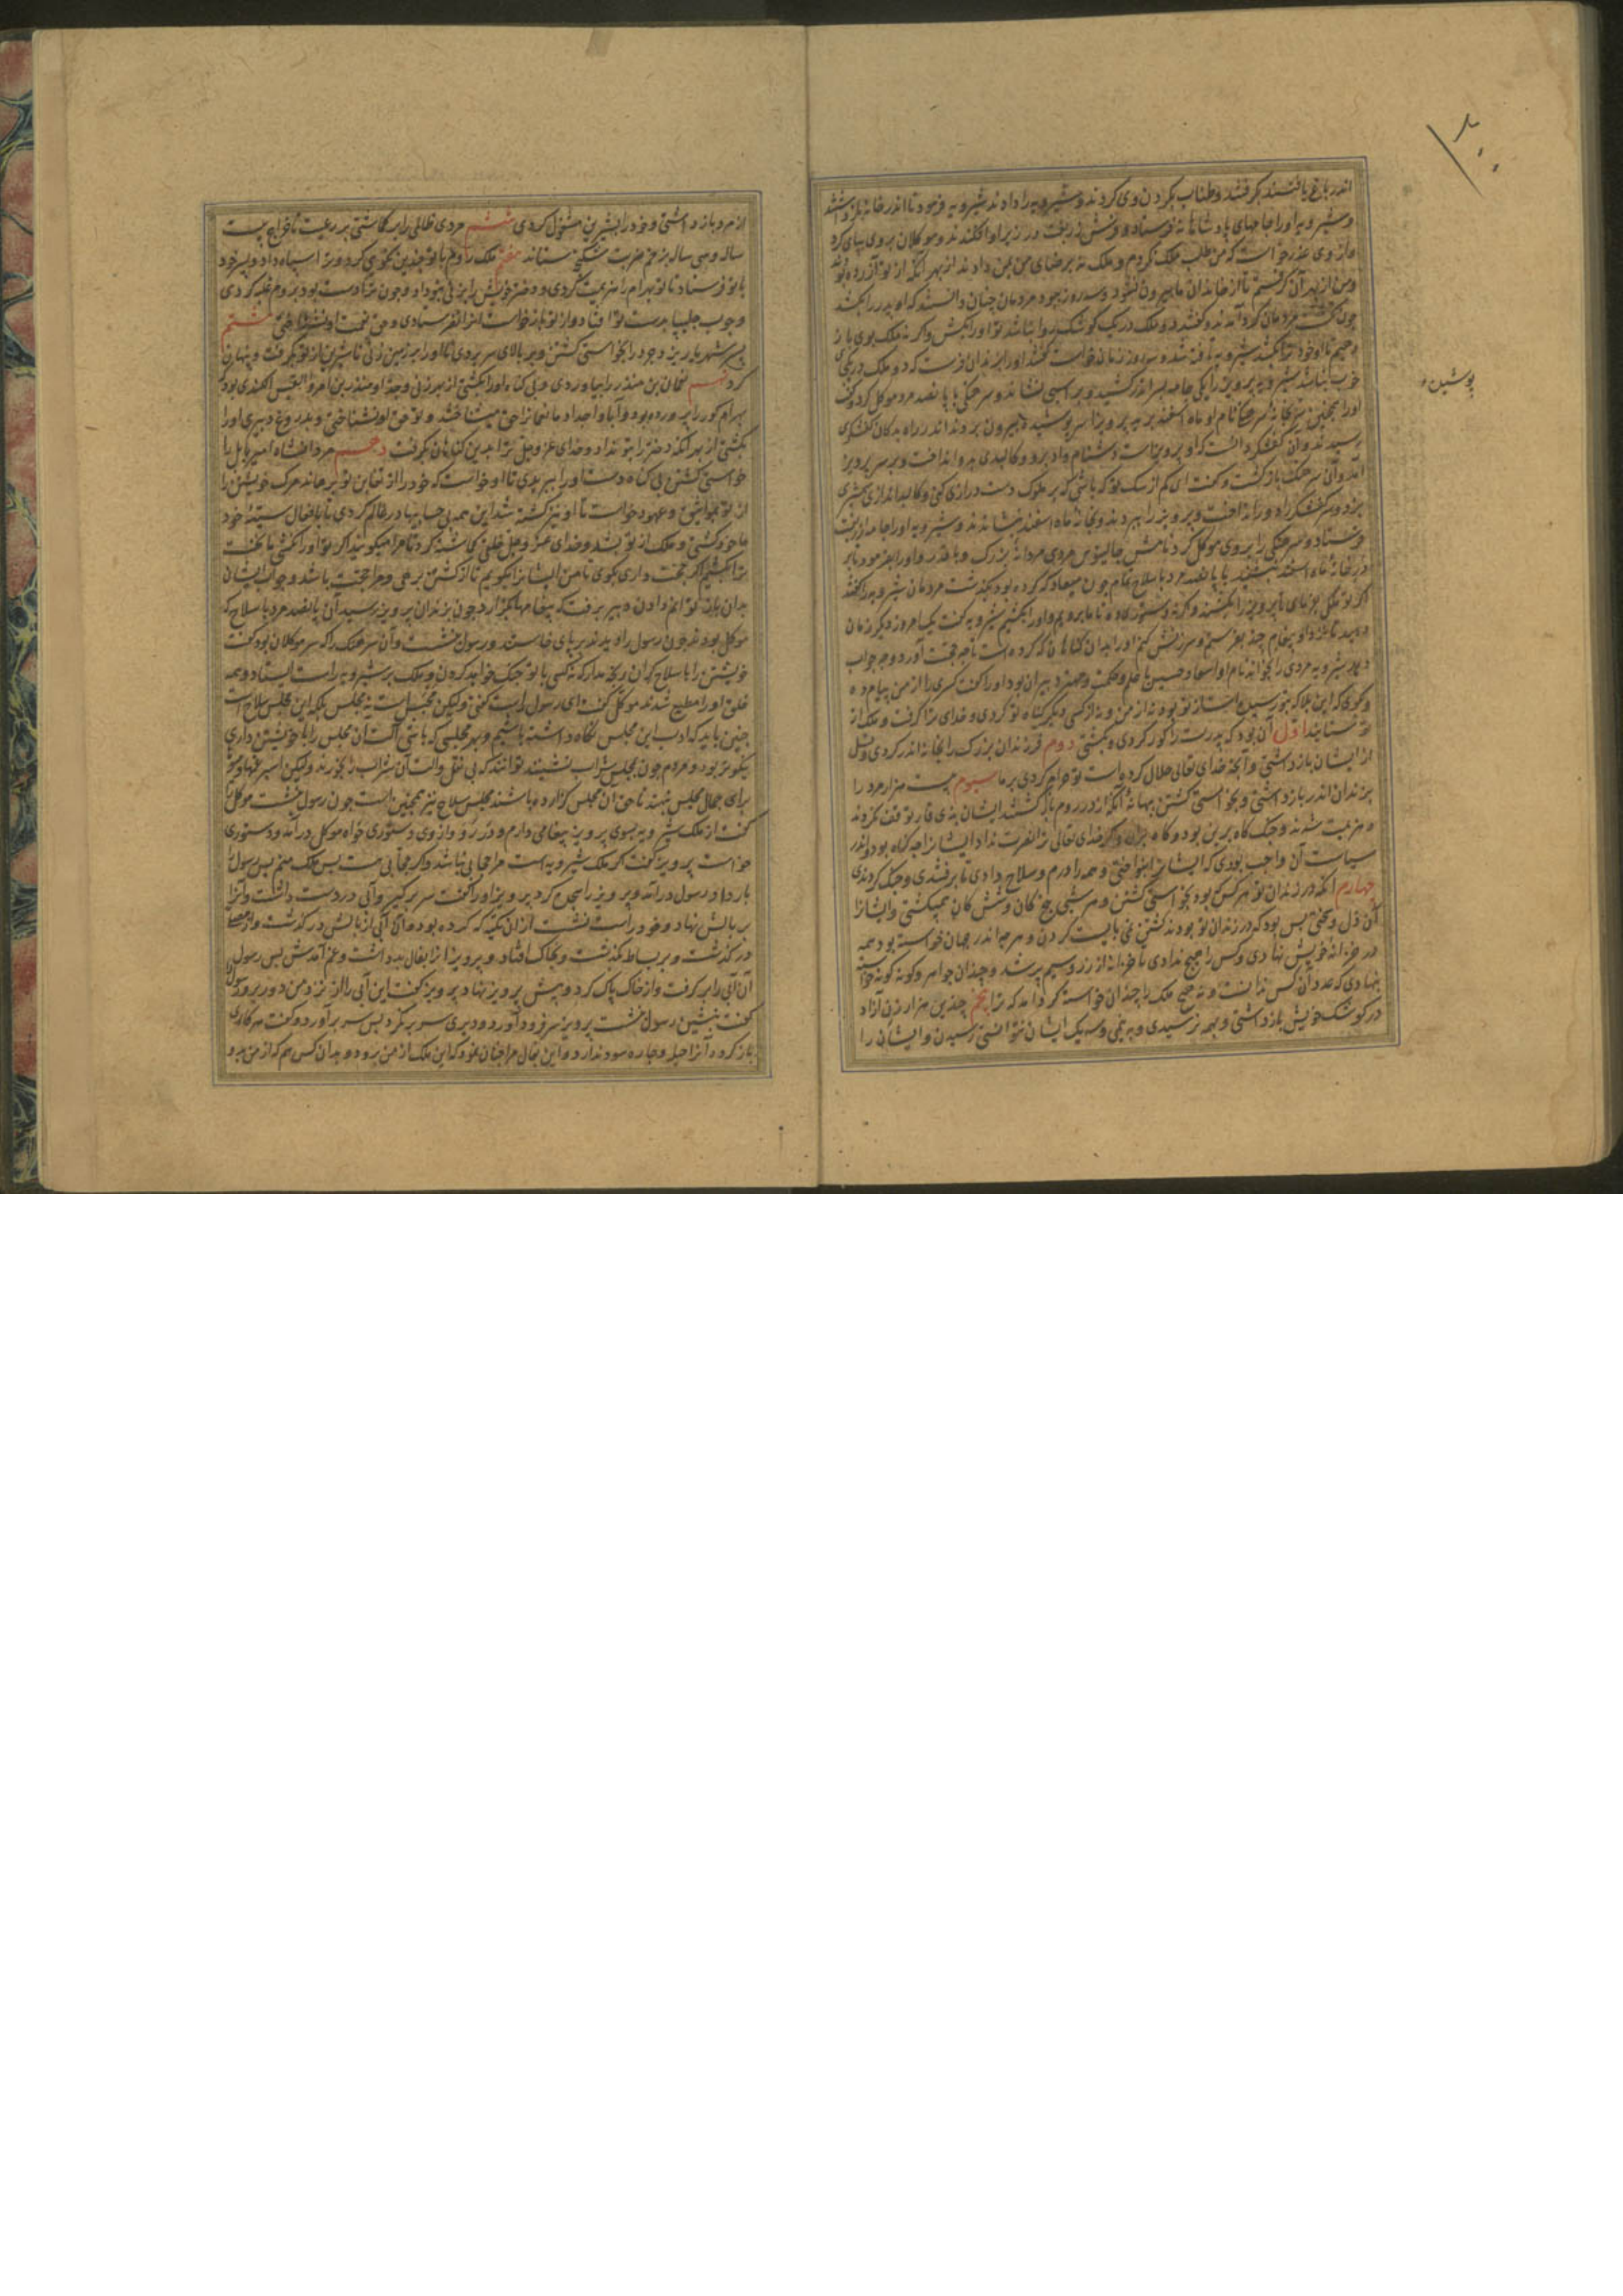 ۲۰۰
اندر باغ یافتند بگرفتند و طناب بگردن وی کردند و شیرویه را دادند شیرویه فرمود تا اندر خانه باز داشتند
و شیرویه او را جامهای پادشاهانه فرستاد و فرش زربفت در زیر او افکندند و موکلان بر وی بپای کرد
و از وی عذر خواست که من طلب ملک نکردم و ملک نه برضای من بمن دادند از بهر آنکه از تو آزرده بودند
و من از بهر آن گرفتم تا از خاندان ما بیرون نشود و سه روز ببود مردمان چنان دانستند که او پدر را بکشد
چون مردمان گرد آمدند و گفتند دو ملک در یک کوشک روا نباشد تو او را بکش و اگر نه ملک بوی باز
دهیم تا او خود ترا بکشد شیرویه تافته شد و سه روز زمان خواست گفتند او را بزندان فرست که دو ملک در یکجا
خوب نباشد شیرویه پرویز را یکی جامه بسر اندر کشید و بر اسبی نشاند و سرهنگی با پانصد مرد موکل کرد و گفت
پوشیده
او را بخانه سرهنگی نام او ماه اسفند بر به پرویز را سر پوشیده بیرون بردند اندر راه بدکان کفشگری
رسیدند و آن کفشگر دانست که او پرویز است دشنام داد برو و کالبدی بدو انداخت و بر سر پرویز
آمد و آن سرهنگ بازگشت و گفت ای کم از سگ تو که باشی که بر ملوک دست درازی کنی و کالبد اندازی شمشیری
بزد و سر کفشگر را دور انداخت و پرویز را ببردند و بخانه ماه اسفند بنشاندند و شیرویه او را جامه زربفت
فرستاد و سرهنگی را بر وی موکل کرد نامش جالیوس مردی مردانه بزرگ و با قدر و او را بفرمود تا بر
در خانه ماه اسفند بنشیند با پانصد مرد با سلاح تمام چون میعاد که کرده بود بگذشت مردمان شیرویه را گفتند
اگر تو ملکی بفرمای تا پرویز را بکشند و اگر نه دستوری ده تا ما برویم و او را بکشیم شیرویه گفت یک امروز دیگر زمان
دهید تا بنزد او پیغام چند بفرستیم و سرزنش کنم او را بدان گناهان که کرده است تا چه حجت آورد و چه جواب
دهد شیرویه مردی را بخواند نام او اسعاد حسیس با علم و حکمت و مهتر دبیران بود او را گفت کسری را از من پیام ده
و بگوی که این بلا که بتو رسیده است از تو بود نه از من و نه از کسی دیگر گناه تو کردی و خدای ترا گرفت و ملک از
تو بستاند اول آن بود که پدرت را کور کردی و بکشتی دوم فرزندان بزرگ را بخانه اندر کردی و نسل
از ایشان باز داشتی و آنچه خدای تعالی حلال کرده است تو حرام کردی بر ما سیوم بیست هزار مرد را
بزندان اندر باز داشتی و بخواستی کشتن ببهانه آنکه از در روم بازگشتند ایشان بذی قار توقف نکردند
و هزیمت شدند و جنگ گاه برین بود و گاه بران و اگر خدای تعالی ترا نصرت نداد ایشان را چه گناه بود و اندر
سیاست آن واجب بودی که ایشان را بنواختی و همه را درم و سلاح دادی تا برفتندی و جنگ کردندی
چهارم آنکه در زندان تو هر کس بود بخواستی کشتن و هر شبی پنج گان و شش گان همیکشتی و ایشان را
آن ذل و محنتی بس بود که در زندان تو بودند کشتن نمی بایست کردن و هر چه اندر جهان خواسته بود همه
در خزانه خویش نهادی و کس را هیچ ندادی تا خزانه از زر و سیم پر شد و چندان جواهر و گونه گونه خواسته
بنهادی که عدد آن کس ندانست و نه هیچ ملک را چندان خواسته گرد آمد که ترا پنجم چندین هزار زن آزاد
در کوشک خویش باز داشتی و بهمه نرسیدی و به نیمی و سه یک ایشان نتوانستی رسیدن و ایشان را
از مرد باز داشتی و خود را بشیرین مشغول کردی ششم مردی ظالم را بر گماشتی بر رعیت تا خراج بیست
ساله و سی ساله بزخم ضرب شکنجه ستاند هفتم ملک روم با تو چندین نکویی کرد و ترا سپاه داد و پسر خود
با تو فرستاد تا تو بهرام را هزیمت کردی و دختر خویش را بزنی بتو داد و چون ترا دست بود بر روم غلبه کردی
و چوب چلیپا بدست تو افتاد و از تو باز خواست نفرستادی و حق نعمت او نشناختی هشتم
پسر شهریار یزدجرد را بخواستی کشتن و بر بالای سر بردی تا او را بر زمین زنی تا شیرین از تو بگرفت و پنهان
کرد نهم نعمان بن منذر را بیاوردی و بی گناه او را بکشتی از بهر زنی و جد او منذر بن امرؤ القیس الکندی بود
بهرام گور را پرورده بود و آبا و اجداد ما نعمان را حق میشناختند و تو حق او نشناختی و بدروغ دبیری او را
بکشتی از بهر آنکه دختر را بتو نداد و خدای عز و جل ترا بدین گناهان بگرفت دهم مردانشاه امیر بابل را
خواستی کشتن بی گناه و دست او را ببریدی تا او خواست که خود را از تغابن تو برهاند مرگ خویش را
از تو بخواهش و عهود خواست تا او نیز کشته شد این همه بی حسابیها در عالم کردی تا بافعال سیئه خود
ماخوذ گشتی و ملک از تو بشد و خدای عز و جل خلق گماشته کرد تا مرا میگویند اگر تو او را نکشی ما بکشیم
ترا بکشیم اگر حجت داری بگوی تا من ایشان را بگویم تا از کشتن برهی و مرا حجت باشد و جواب ایشان
بدان باز توانم دادن دبیر برفت که پیغامها بگزارد چون بزندان پرویز رسید آن پانصد مرد با سلاح که
موکل بودند چون رسول را دیدند بر پای خاستند و رسول بنشست و آن سرهنگ را که سر موکلان بود گفت
خویشتن را با سلاح گران رنجه مدار که نه کسی با تو جنگ خواهد کردن و ملک بر شیرویه راست ایستاد و همه
خلق او را مطیع شدند موکل گفت ای رسول راست گفتی ولیکن مجلس است نه مجلس بلکه این مجلس سلاح است
چنین باید که ادب این مجلس نگاه داشته باشیم و بهر مجلسی که باشی آلت آن مجلس را با خویشتن داری
نیکوتر بود و مردم چون بمجلس شراب نشینند توانند که بی نقل و آلت آن شراب را بخورند ولیکن اسپرغمها و میوها
برای جمال مجلس نهند تا حق آن مجلس گزارده باشند مجلس سلاح نیز همچنین است چون رسول بنشست موکل را
گفت از ملک شیرویه بسوی پرویز پیغامی دارم و در رو و از وی دستوری خواه موکل در آمد و دستوری
خواست پرویز گفت گر ملک شیرویه است مرا حجابی نباشد و اگر حجابی هست پس ملک منم پس رسول را
بار داد رسول در آمد و پرویز را سجده کرد پرویز او را گفت سر برگیر و آبی در دست داشت و آنرا
بر بالش نهاد و خود راست بنشست از آن تکیه که کرده بود و آن آبی از بالش در گذشت و از مصلی
در گذشت و بر بساط بگذشت و بخاک افتاد و پرویز آنرا بفال بد داشت و غم آمدش پس رسول
آن آبی را برگرفت و از خاک پاک کرد و پیش پرویز نهاد پرویز گفت این آبی را از نزد من دور بر و او را
گفت بنشین رسول بنشست پرویز سر فرود آورد و دیری سر بر نکرد پس سر بر آورد و گفت هر کاری
باز گردد آنرا حیله و چاره سود ندارد و این فال مرا چنان نمود که این ملک از من برود و بدان کس هم که از من بدو